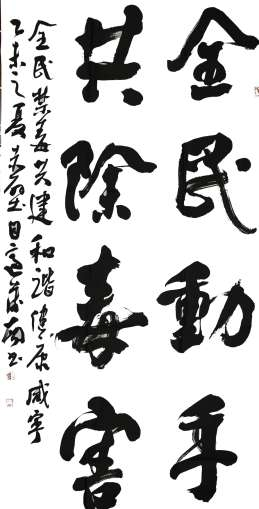 全民動手
共除毒害
全民禁毒共建和谐健康咸宁
乙未之夏